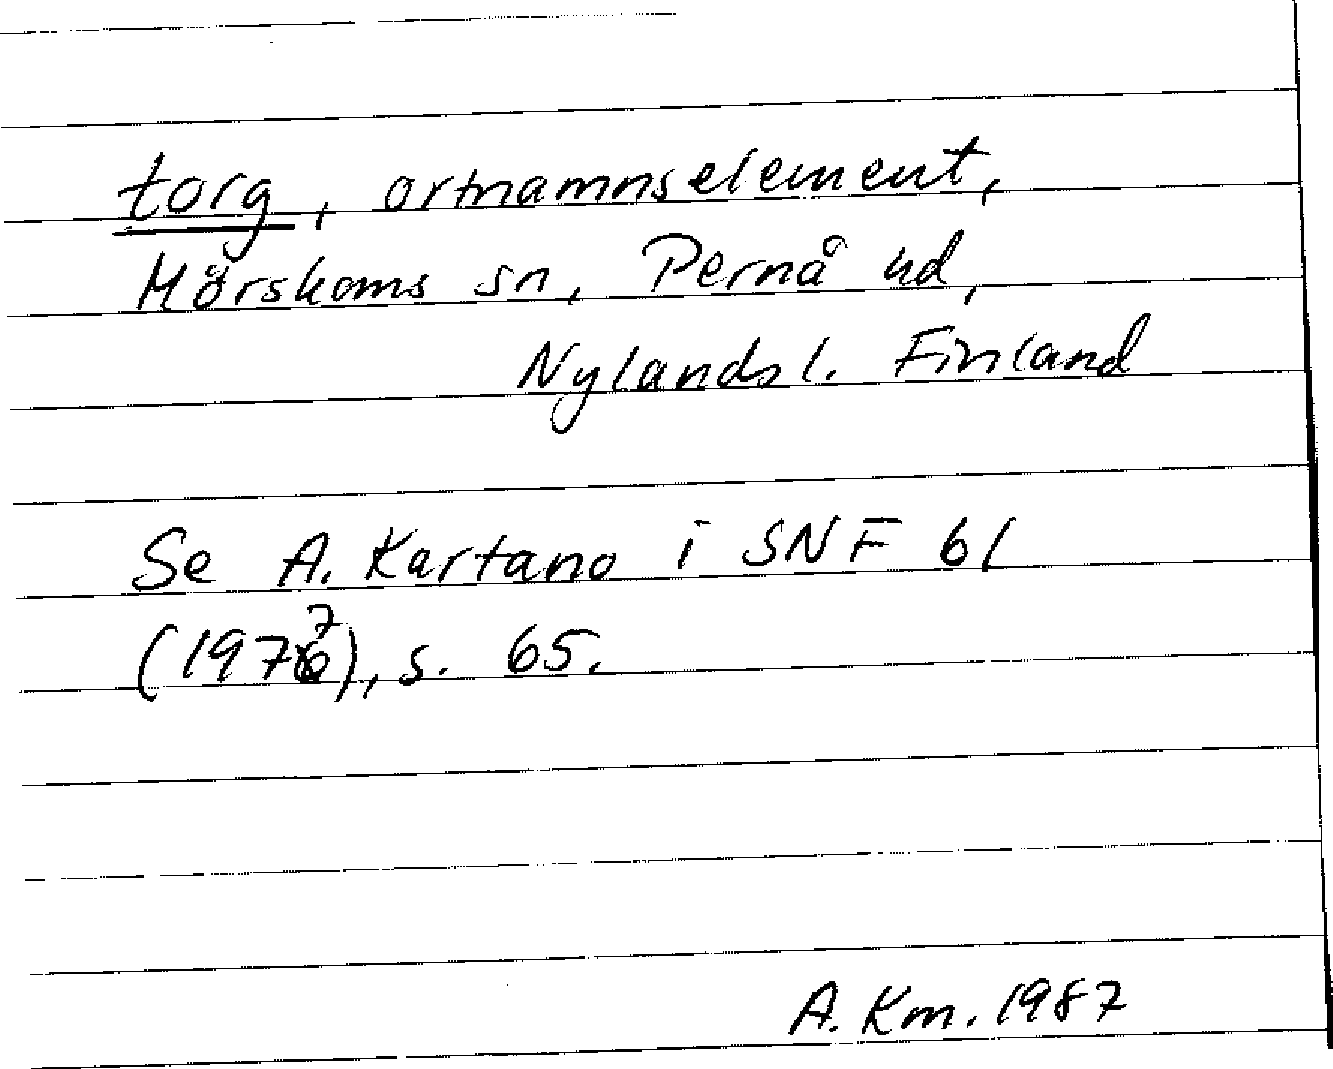 torg, ortnamnselement,
Mörskoms sn, Pernå hd,
Nylands l. Finland
Se A. Kartano i SNF 61
(1977), s. 65.
A. Km. 1987